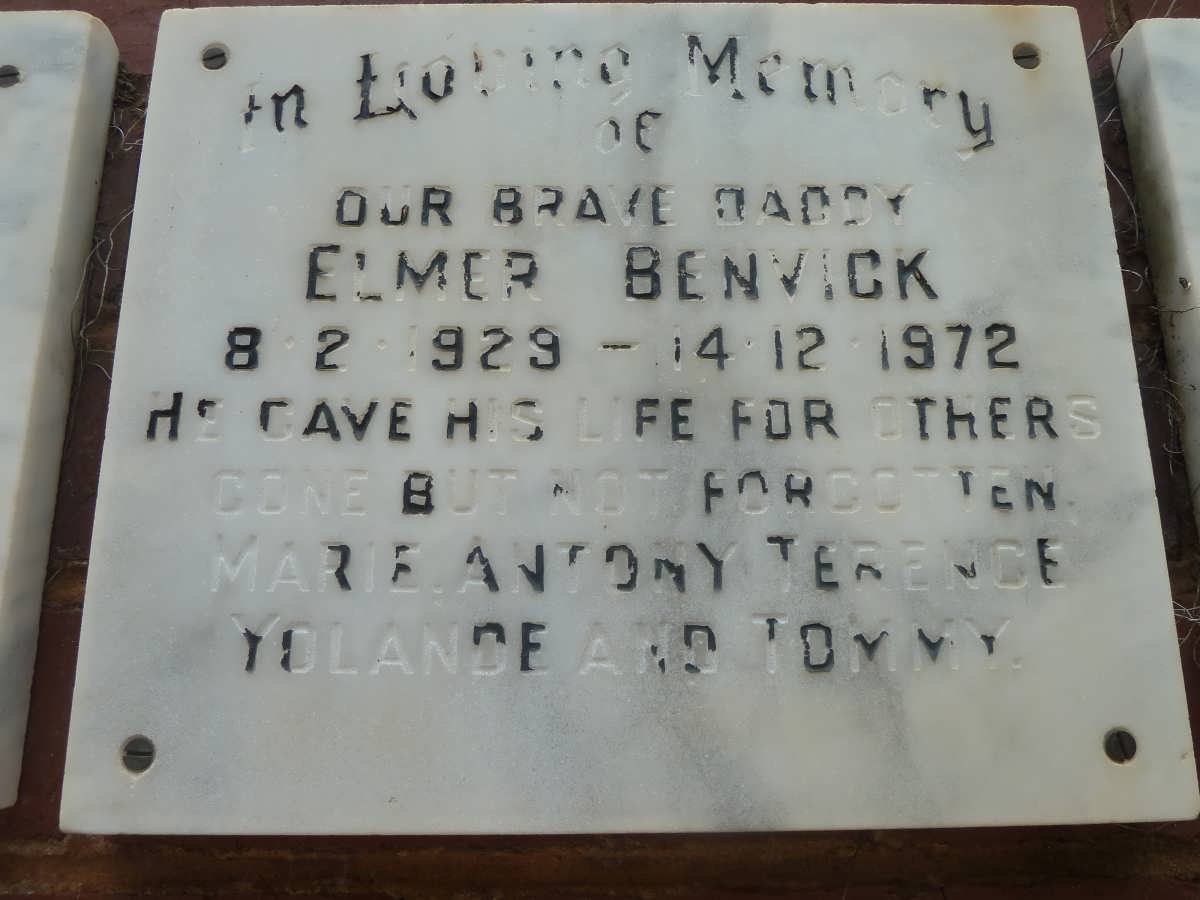 In Loving Memory
OF
OUR BRAVE DADDY
ELMER BENVICK
8·2·1929 – 14·12·1972
HE GAVE HIS LIFE FOR OTHERS
GONE BUT NOT FORGOTTEN.
MARIE, ANTONY, TERENCE
YOLANDE AND TOMMY.